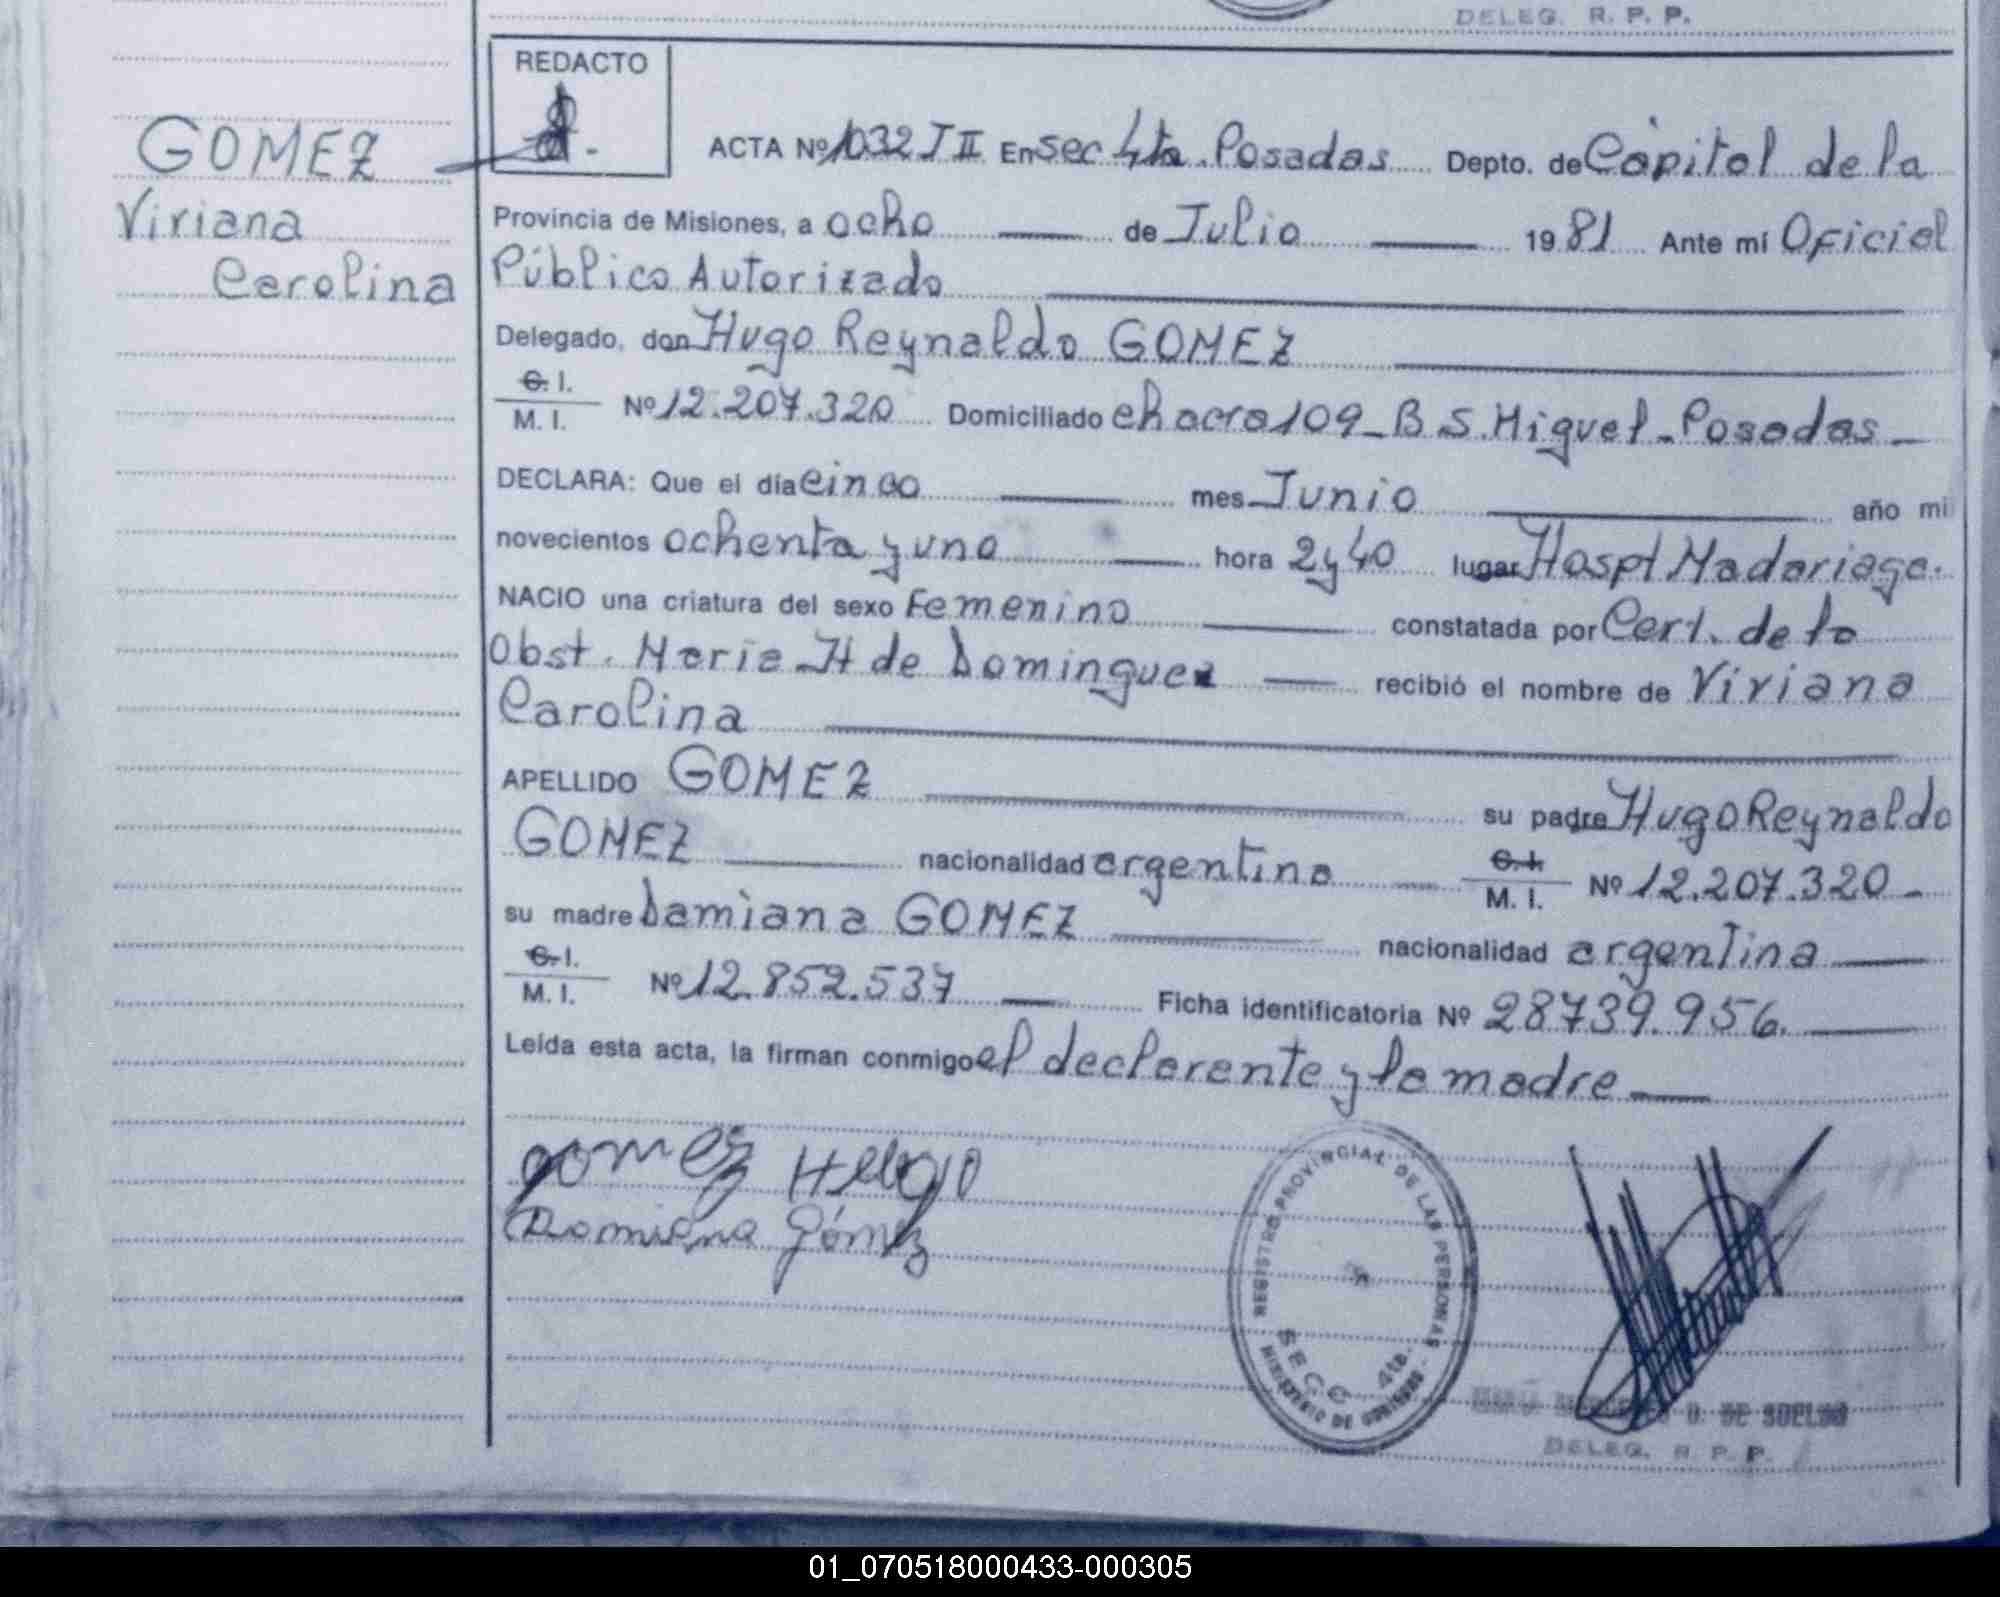 DELEG. R. P. P.
REDACTO
GOMEZ
Viriana
Carolina
ACTA Nº 1032 T II En Sec 4ta. Posadas Depto. de Capital de la
Provincia de Misiones, a ocho de Julio 1981 Ante mí Oficial
Público Autorizado
Delegado, don Hugo Reynaldo GOMEZ
C. I.
M. I. Nº 12.207.320 Domiciliado chacra 109_B S. Miguel_Posadas_
DECLARA: Que el día cinco mes Junio año mil
novecientos ochenta y uno hora 2 y 40 lugar Hospt Madariaga.
NACIO una criatura del sexo Femenino constatada por Cert. de la
Obst. Maria H de Dominguez recibió el nombre de Viriana
Carolina
APELLIDO GOMEZ su padre Hugo Reynaldo
GOMEZ nacionalidad argentina C. I.
M. I. Nº 12.207.320_
su madre Damiana GOMEZ nacionalidad argentina
C. I.
M. I. Nº 12.852.537 Ficha identificatoria Nº 28739.956.
Leída esta acta, la firman conmigo el declarante y la madre
gomez Hugo
Damiana Gómez
REGISTRO PROVINCIAL DE LAS PERSONAS
SECC 4ta.
MINISTERIO DE GOBIERNO
D. DE SUELDO
DELEG. R. P. P.
01_070518000433-000305